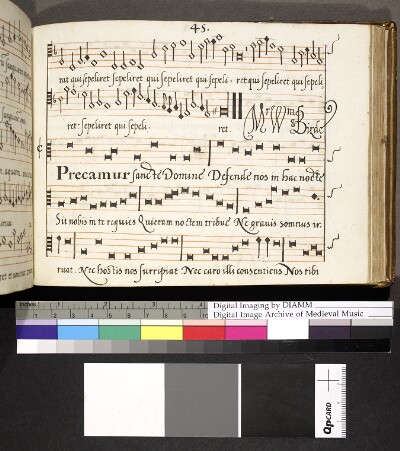 45.
rat qui sepeliret sepeliret qui sepeliret qui sepeliret qui sepeli. ret qui sepeliret qui sepeli
ret: sepeliret qui sepeli. ret. Mr Wm: Birde
Precamur sancte Domine Defende nos in hac nocte
Sit nobis in te requies Quietam noctem tribue Ne grauis somnus ir.
ruat. Nec hostis nos surripiat Nec caro illi consentiens Nos tibi
Inches 1 2 3
Digital Imaging by DIAMM
Digital Image Archive of Medieval Music
QPCARD